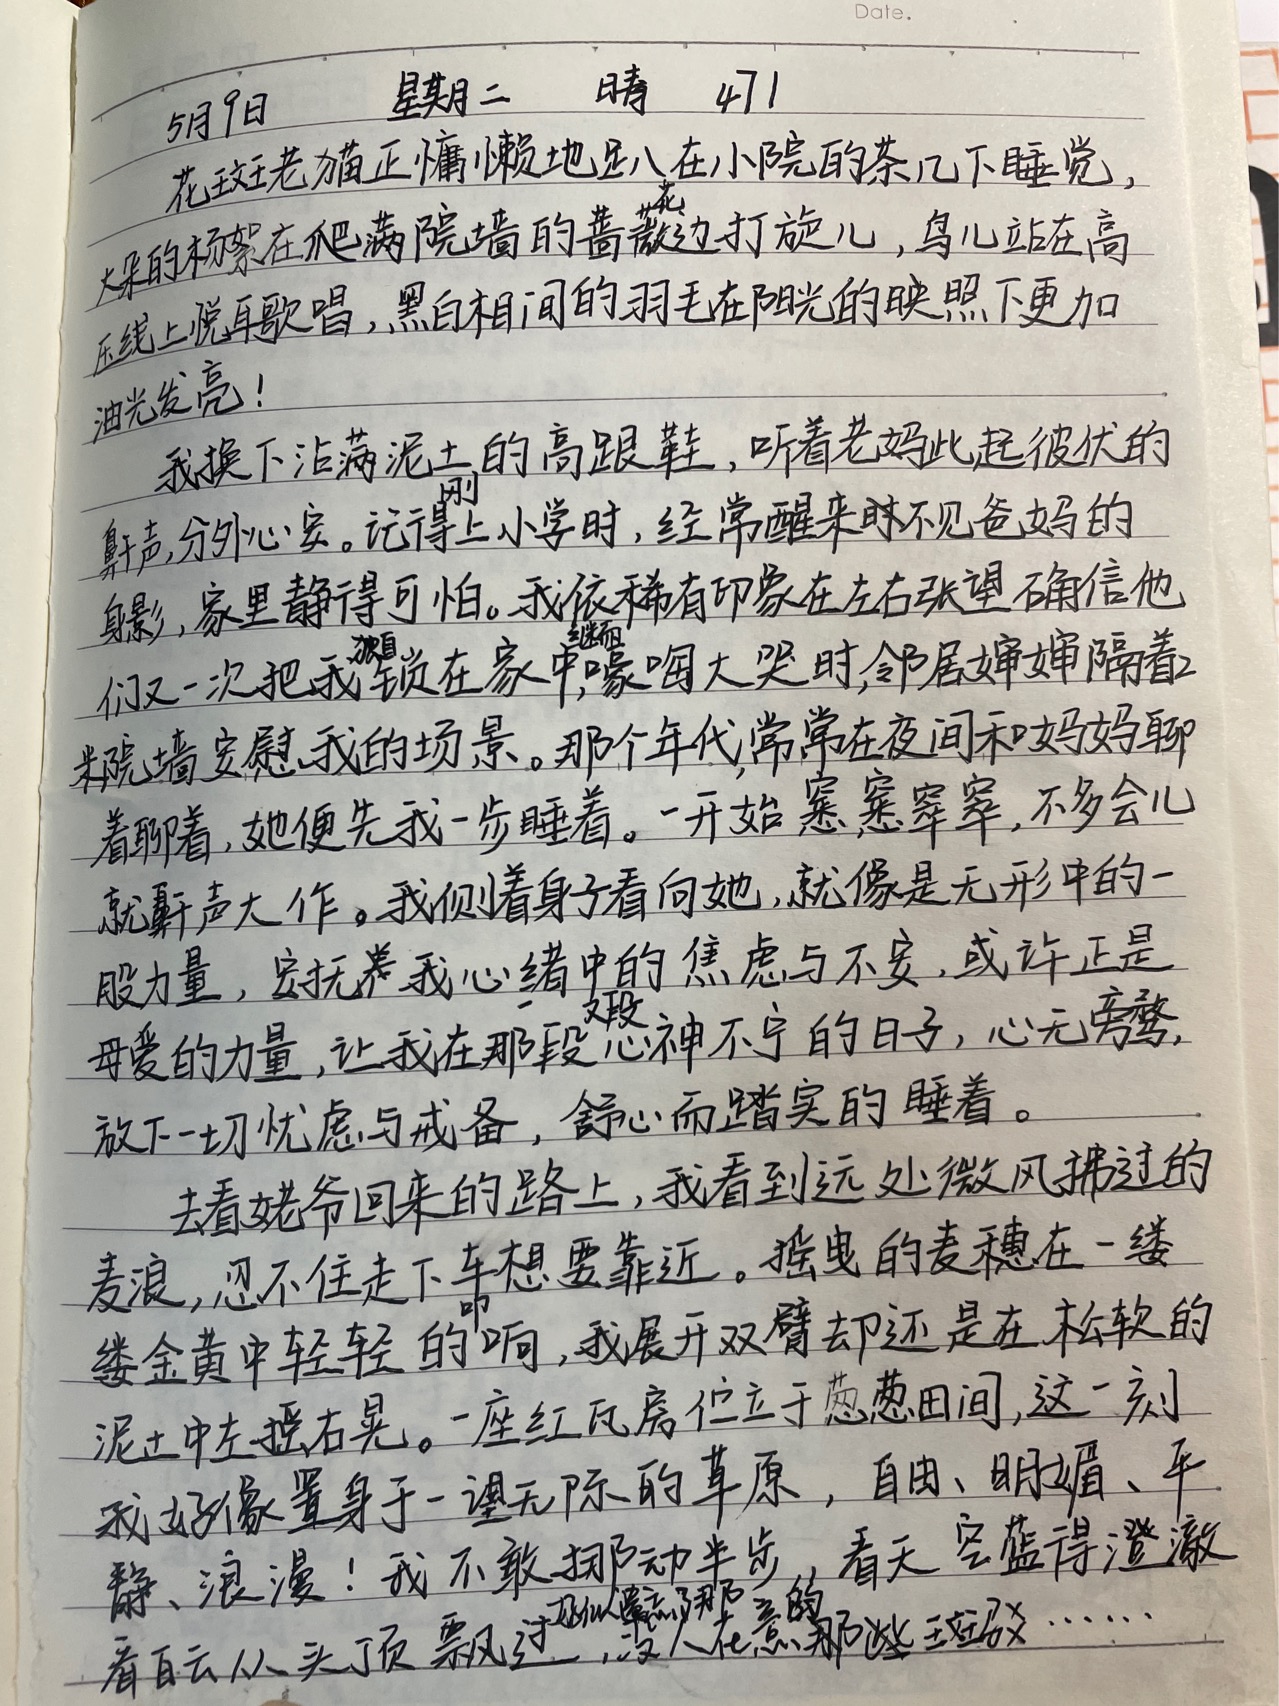 Date.
5月9日 星期二 晴 471
花斑老猫正慵懒地趴在小院的茶几下睡觉，
大朵的杨絮在爬满院墙的蔷薇花边打旋儿，鸟儿站在高
压线上悦耳歌唱，黑白相间的羽毛在阳光的映照下更加
油光发亮！
我换下沾满泥土的高跟鞋，听着老妈此起彼伏的
鼾声，分外心安。记得刚上小学时，经常醒来时不见爸妈的
身影，家里静得可怕。我依稀有印象在左右张望确信他
们又一次把我独自锁在家中，继而嚎啕大哭时，邻居婶婶隔着2
米院墙安慰我的场景。那个年代，常常在夜间和妈妈聊
着聊着，她便先我一步睡着。一开始窸窸窣窣，不多会儿
就鼾声大作。我侧着身子看向她，就像是无形中的一
股力量，安抚着我心绪中的焦虑与不安，或许正是
母爱的力量，让我在那一段又一段心神不宁的日子，心无旁骛，
放下一切忧虑与戒备，舒心而踏实的睡着。
去看姥爷回来的路上，我看到远处微风拂过的
麦浪，忍不住走下车想要靠近。摇曳的麦穗在一缕
缕金黄中轻轻的叩响，我展开双臂却还是在松软的
泥土中左摇右晃。一座红瓦房伫立于葱葱田间，这一刻
我好像置身于一望无际的草原，自由、明媚、平
静、浪漫！我不敢挪动半步，看天空蓝得澄澈
看白云从头顶飘过，没人在意的那些